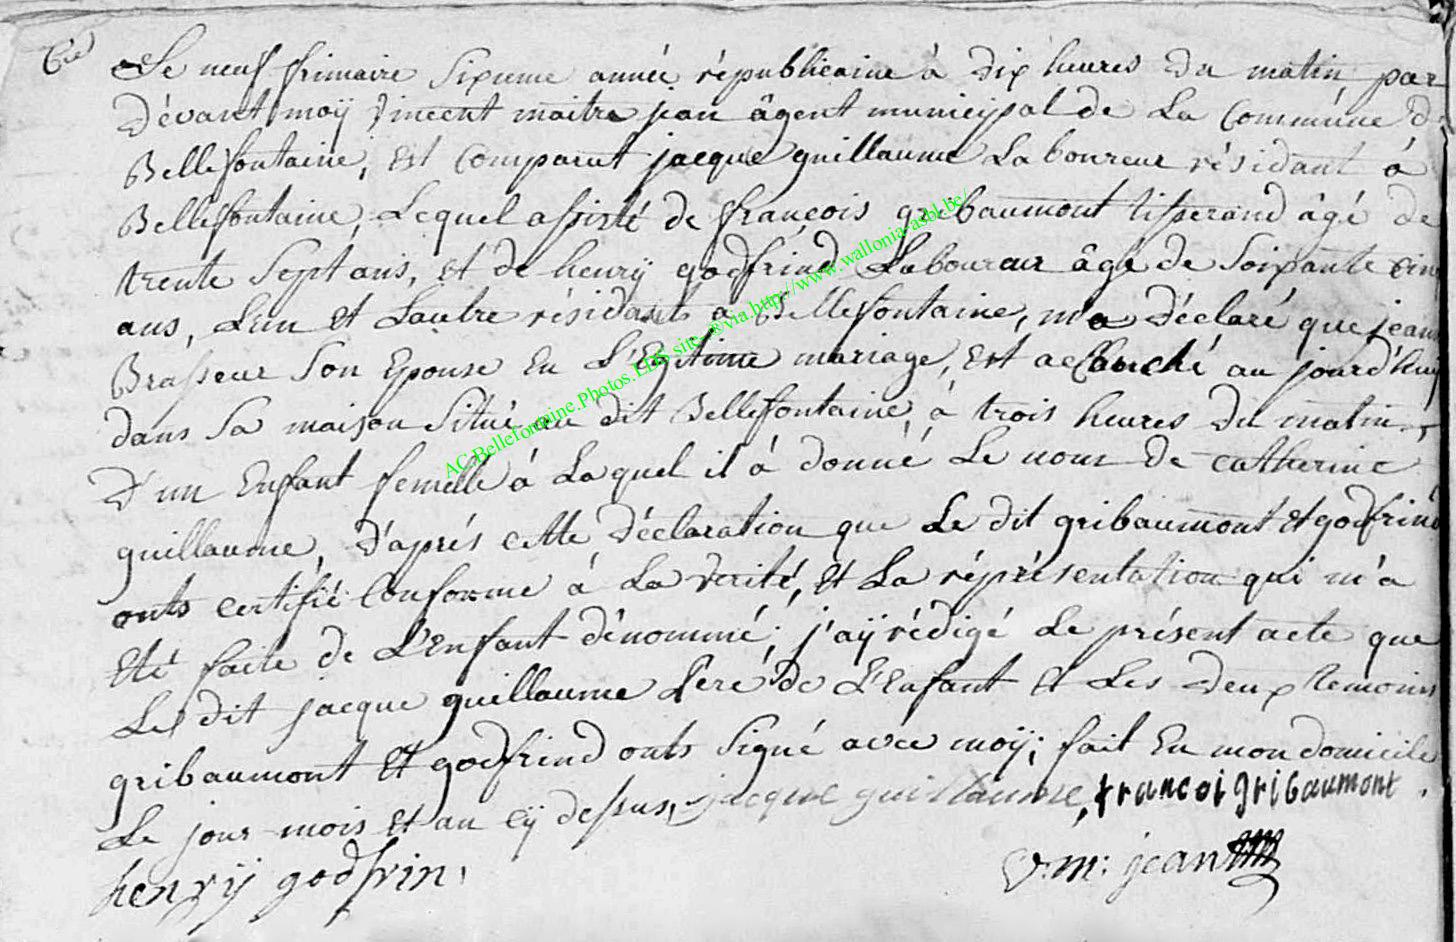 Le neuf frimaire sixieme année républicaine à dix heures du matin, par
dévant moÿ vincent maitre jean âgent municipal de La Commúne d
Bellefontaine, Est Comparut jacque guillaume Laboureur résidant à
Bellefontaine, Lequel assisté de françois gribaumont tisserand âgé de
trente Sept ans, et de henrÿ godfrind Laboureur âgé de Soixante cin
ans, L'un Et Lautre résidants a Bellefontaine, m'a déclaré que jean
Brasseur Son Epouse En L'Egitime mariage, Est accouché au jourd'huÿ
dans Sa maison Situé au dit Bellefontaine, à trois heures du matin,
D'un Enfant femelle à Laquel il à donné Le nom De catherine
guillaume, d'aprés cette déclaration que Le dit gribaumont Et godfrind
onts certifié Conforme à La verité, Et La réprésentation qui m'a
Eté faite de L'Enfant dénommé, j'aÿ rédigé Le présent acte que
Le dit jacque guillaume Peré de L'Enfant Et Les deux temoins
gribaumont Et godfrind onts Signé avec moÿ; fait En mon domicile
Le jour mois Et an cÿ dessus, jacque guillaume, francoi gribaumont
henryÿ godfrin, v: m: jean
AC.Bellefontaine.Photos.LDS site @via.http://www.wallonia-asbl.be/